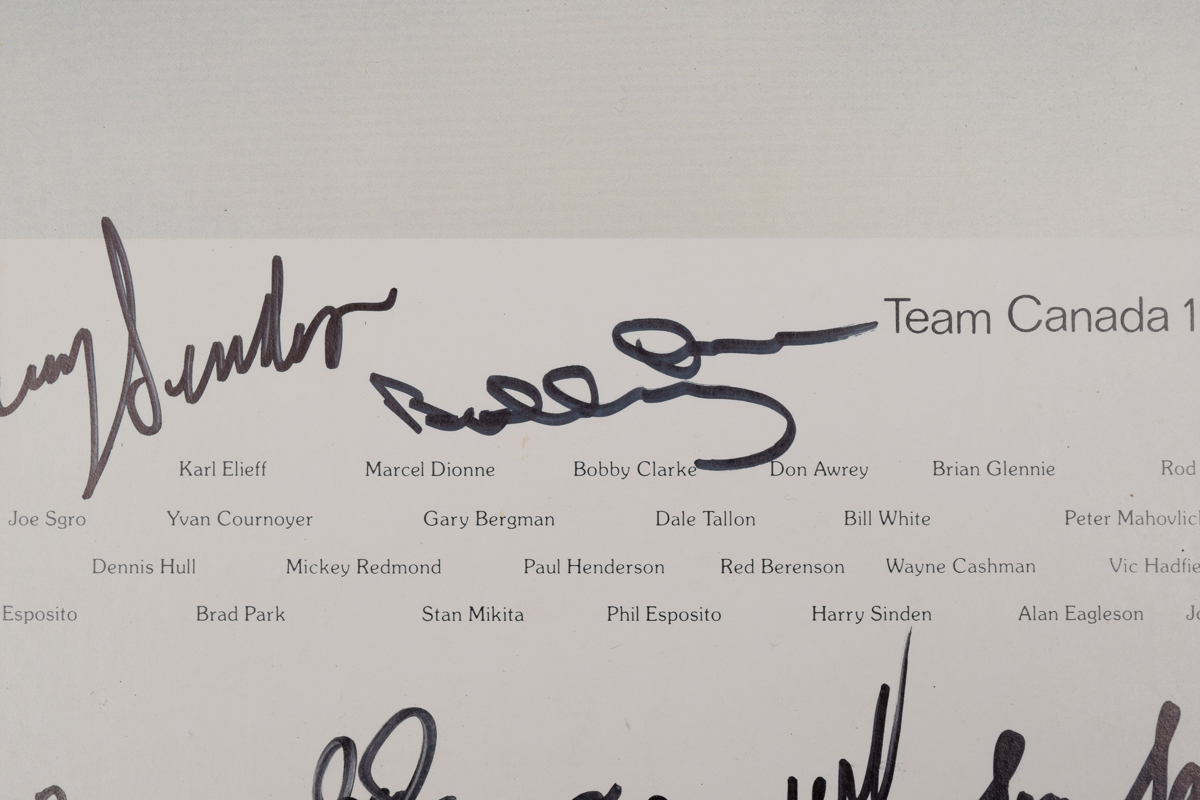 Team Canada 1
Karl Elieff Marcel Dionne Bobby Clarke Don Awrey Brian Glennie Rod
Joe Sgro Yvan Cournoyer Gary Bergman Dale Tallon Bill White Peter Mahovlich
Dennis Hull Mickey Redmond Paul Henderson Red Berenson Wayne Cashman Vic Hadfie
Esposito Brad Park Stan Mikita Phil Esposito Harry Sinden Alan Eagleson Jo